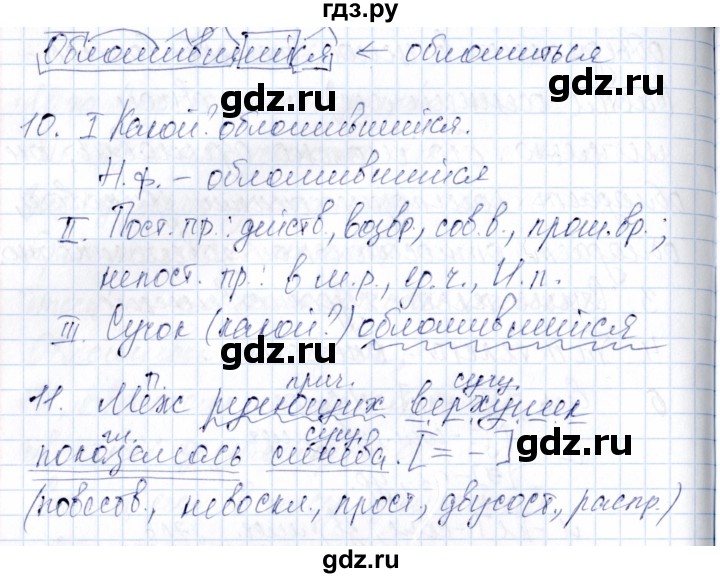 гдз.ру
Обломившийся ← обломиться
gdz.ru gdz.ru
10. I Какой? обломившийся.
Н.ф. – обломившийся
II. Пост. пр.: действ., возвр., сов.в., прош.вр.;
непост. пр.: в м.р., ед.ч., И.п.
III. Сучок (какой?) обломившийся
gdz.ru gdz.ru
П. прич. сущ.
11. Меж редеющих верхушек
гл. сущ.
показалась синева. [= –]
gdz.ru gdz.ru
(повеств., невоскл., прост., двусост., распр.)
gdz.ru gdz.ru